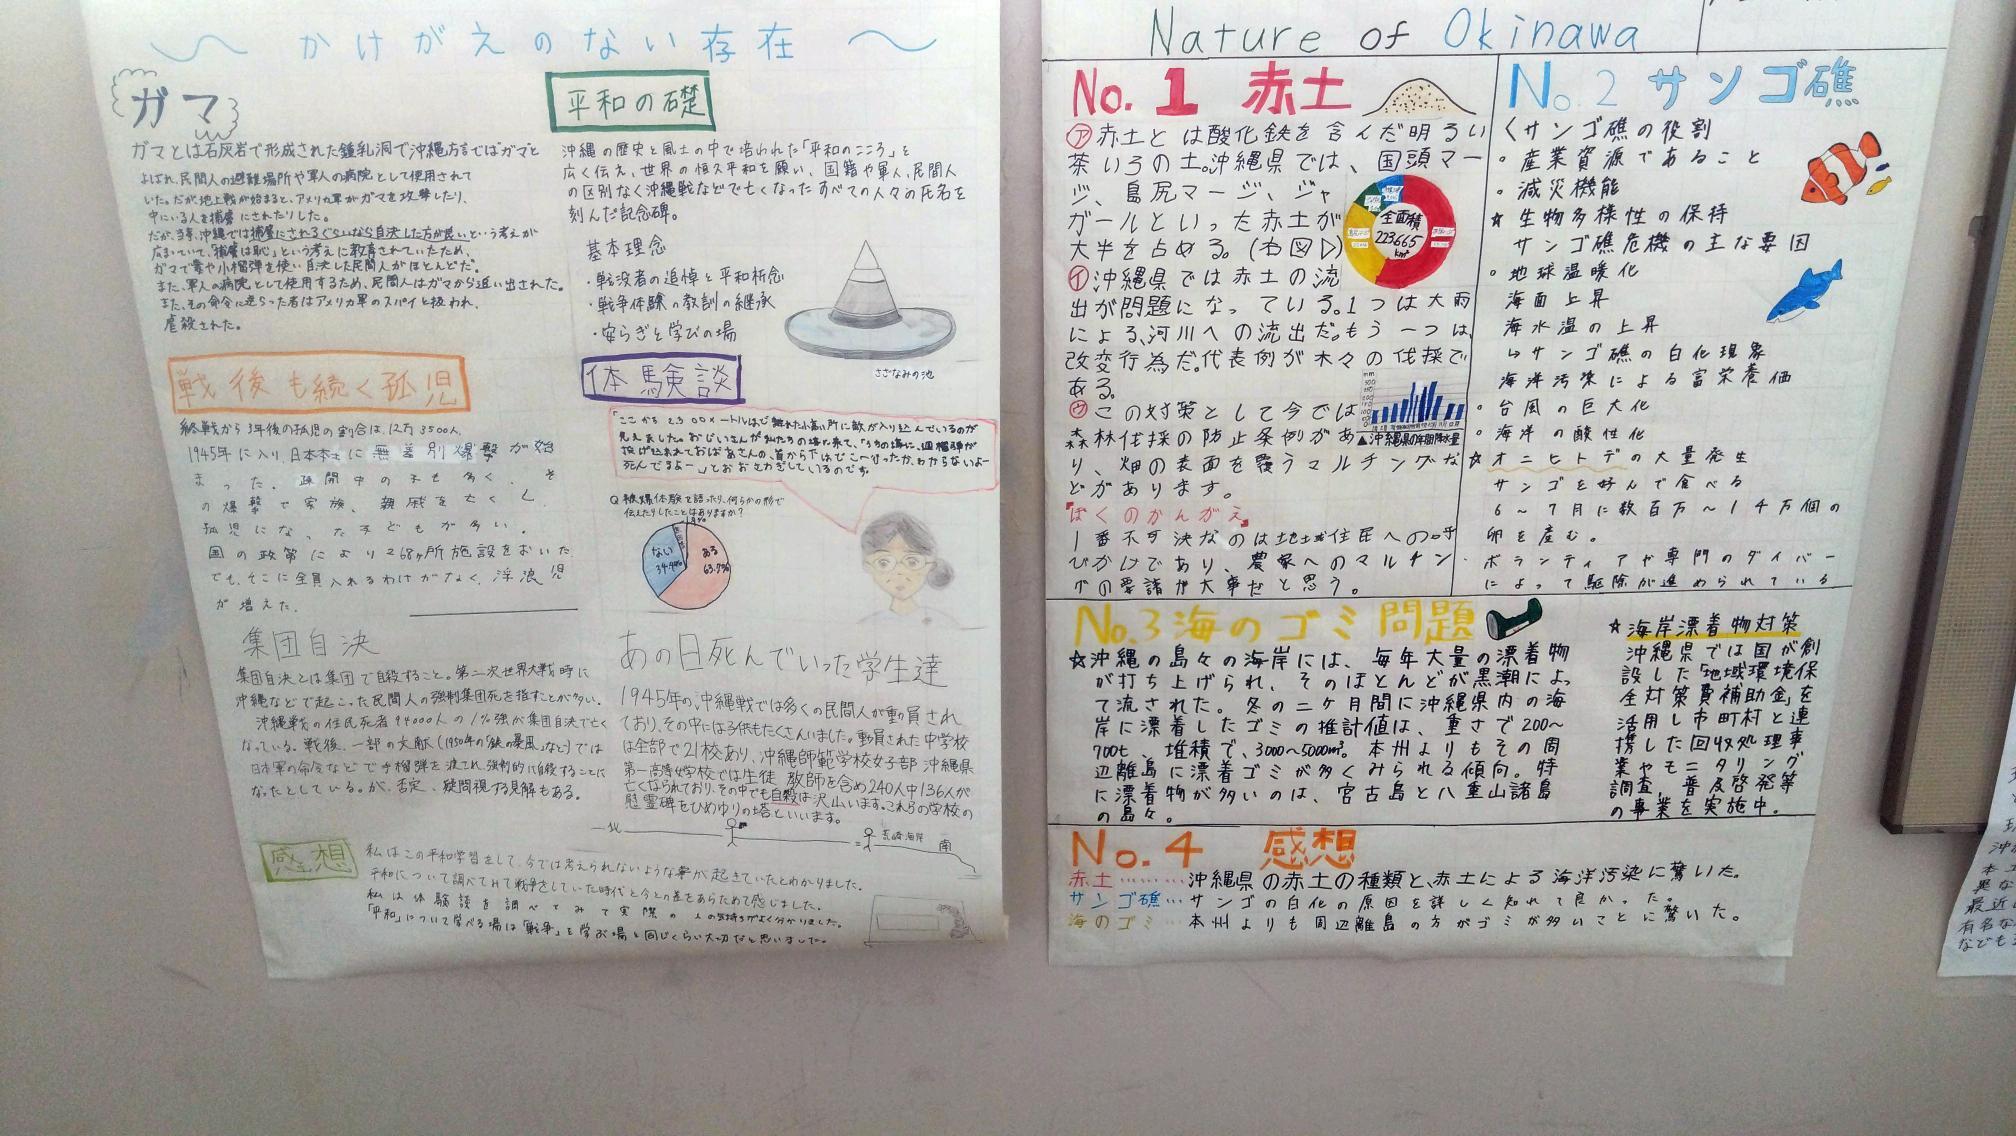 かけがえのない存在
ガマ
ガマとは石灰岩で形成された鍾乳洞で沖縄方言ではガマと
よばれ、民間人の避難場所や軍人の病院として使用されて
いた。だが地上戦が始まると、アメリカ軍がガマを攻撃したり、
中にいる人を捕虜にされたりした。
だが、当時、沖縄では捕虜にされるぐらいなら自決した方が良いという考えが
広まっていて、「捕虜は恥」という考えに教育されていたため、
ガマで毒や小榴弾を使い自決した民間人がほとんどだ。
また、軍人の病院として使用するため、民間人はガマから追い出された。
また、その命令に逆らった者はアメリカ軍のスパイと扱われ、
虐殺された。
平和の礎
沖縄の歴史と風土の中で培われた「平和のこころ」を
広く伝え、世界の恒久平和を願い、国籍や軍人、民間人
の区別なく沖縄戦などで亡くなったすべての人々の氏名を
刻んだ記念碑。
基本理念
・戦没者の追悼と平和祈念
・戦争体験の教訓の継承
・安らぎと学びの場
さざなみの池
戦後も続く孤児
終戦から3年後の孤児の割合は、12万3500人。
1945年に入り日本本土に無差別爆撃が始
まった。疎開中の子も多く、そ
の爆撃で家族、親戚を亡くし
孤児になった子どもが多い。
国の政策により268ヶ所施設をおいた
でも、そこに全員入れるわけがなく、浮浪児
が増えた。
体験談
「ここから2,300メートルほど離れた小高い所に敵が入り込んでいるのが
見えました。おじいさんが私たちの壕に来て、「うちの壕に、迫榴弾が
投げ込まれておばあさんの、首から下はどこへ行ったか、わからないよー
死んでるよー」とおおさわぎしているのです。
Q 被爆体験を語ったり、何らかの形で
伝えたりしたことはありますか?
ある
63.7%
ない
34.4%
集団自決
集団自決とは集団で自殺すること。第二次世界大戦時に
沖縄などで起こった民間人の強制集団死を指すことが多い。
沖縄戦の住民死者94000人の1%強が集団自決で亡く
なっている。戦後、一部の文献(1950年の「鉄の暴風」など)では
日本軍の命令などで手榴弾を渡され、強制的に自殺することに
なったとしている。が、否定、疑問視する見解もある。
あの日死んでいった学生達
1945年の沖縄戦では多くの民間人が動員され
ており、その中には子供もたくさんいました。動員された中学校
は全部で21校あり、沖縄師範学校女子部 沖縄県
第一高等女学校では生徒 教師を含め240人中136人が
亡くなられており、その中でも自殺は沢山います。これらの学校の
慰霊碑をひめゆりの塔といいます。
北
荒崎海岸
南
感想
私はこの平和学習をして、今では考えられないような事が起きていたとわかりました。
平和について調べてみて戦争をしていた時代と今との差をあらためて感じました。
私は体験談を調べてみて実際の人の気持ちがよく分かりました。
「平和」について学べる場は「戦争」を学ぶ場と同じくらい大切だと思いました。
Nature of Okinawa
No.1 赤土
ア赤土とは酸化鉄を含んだ明るい
茶いろの土。沖縄県では、国頭マー
ジ、島尻マージ、ジャ
ガールといった赤土が
大半を占める。(右図▷)
全面積
223665
km²
イ沖縄県では赤土の流
出が問題になっている。1つは大雨
による、河川への流出だ。もう一つは、
改変行為だ。代表例が木々の伐採で
ある。
ウこの対策として今では
森林伐採の防止条例があ
り、畑の表面を覆うマルチングな
どがあります。
▲沖縄県の年間降水量
『ぼくのかんがえ』
1番不可決なのは地域住民への呼
びかけであり、農家へのマルチン
グの要請が大事だと思う。
No.2 サンゴ礁
くサンゴ礁の役割
。産業資源であること
。減災機能
☆生物多様性の保持
サンゴ礁危機の主な要因
。地球温暖化
海面上昇
海水温の上昇
↳サンゴ礁の白化現象
海洋汚染による富栄養価
。台風の巨大化
。海洋の酸性化
☆オニヒトデの大量発生
サンゴを好んで食べる
6〜7月に数百万〜1千万個の
卵を産む。
・ボランティアや専門のダイバー
によって駆除が進められている
No.3 海のゴミ問題
☆沖縄の島々の海岸には、毎年大量の漂着物
が打ち上げられ、そのほとんどが黒潮によっ
て流された。冬の二ケ月間に沖縄県内の海
岸に漂着したゴミの推計値は、重さで200〜
700t、堆積で、3000〜5000㎥。本州よりもその周
辺離島に漂着ゴミが多くみられる傾向。特
に漂着物が多いのは、宮古島と八重山諸島
の島々。
☆海岸漂着物対策
沖縄県では国が創
設した「地域環境保
全対策費補助金」を
活用し市町村と連
携した回収処理事
業やモニタリング
調査、普及啓発等
の事業を実施中。
No.4 感想
赤土………沖縄県の赤土の種類と、赤土による海洋汚染に驚いた。
サンゴ礁…サンゴの白化の原因を詳しく知れて良かった。
海のゴミ…本州よりも周辺離島の方がゴミが多いことに驚いた。